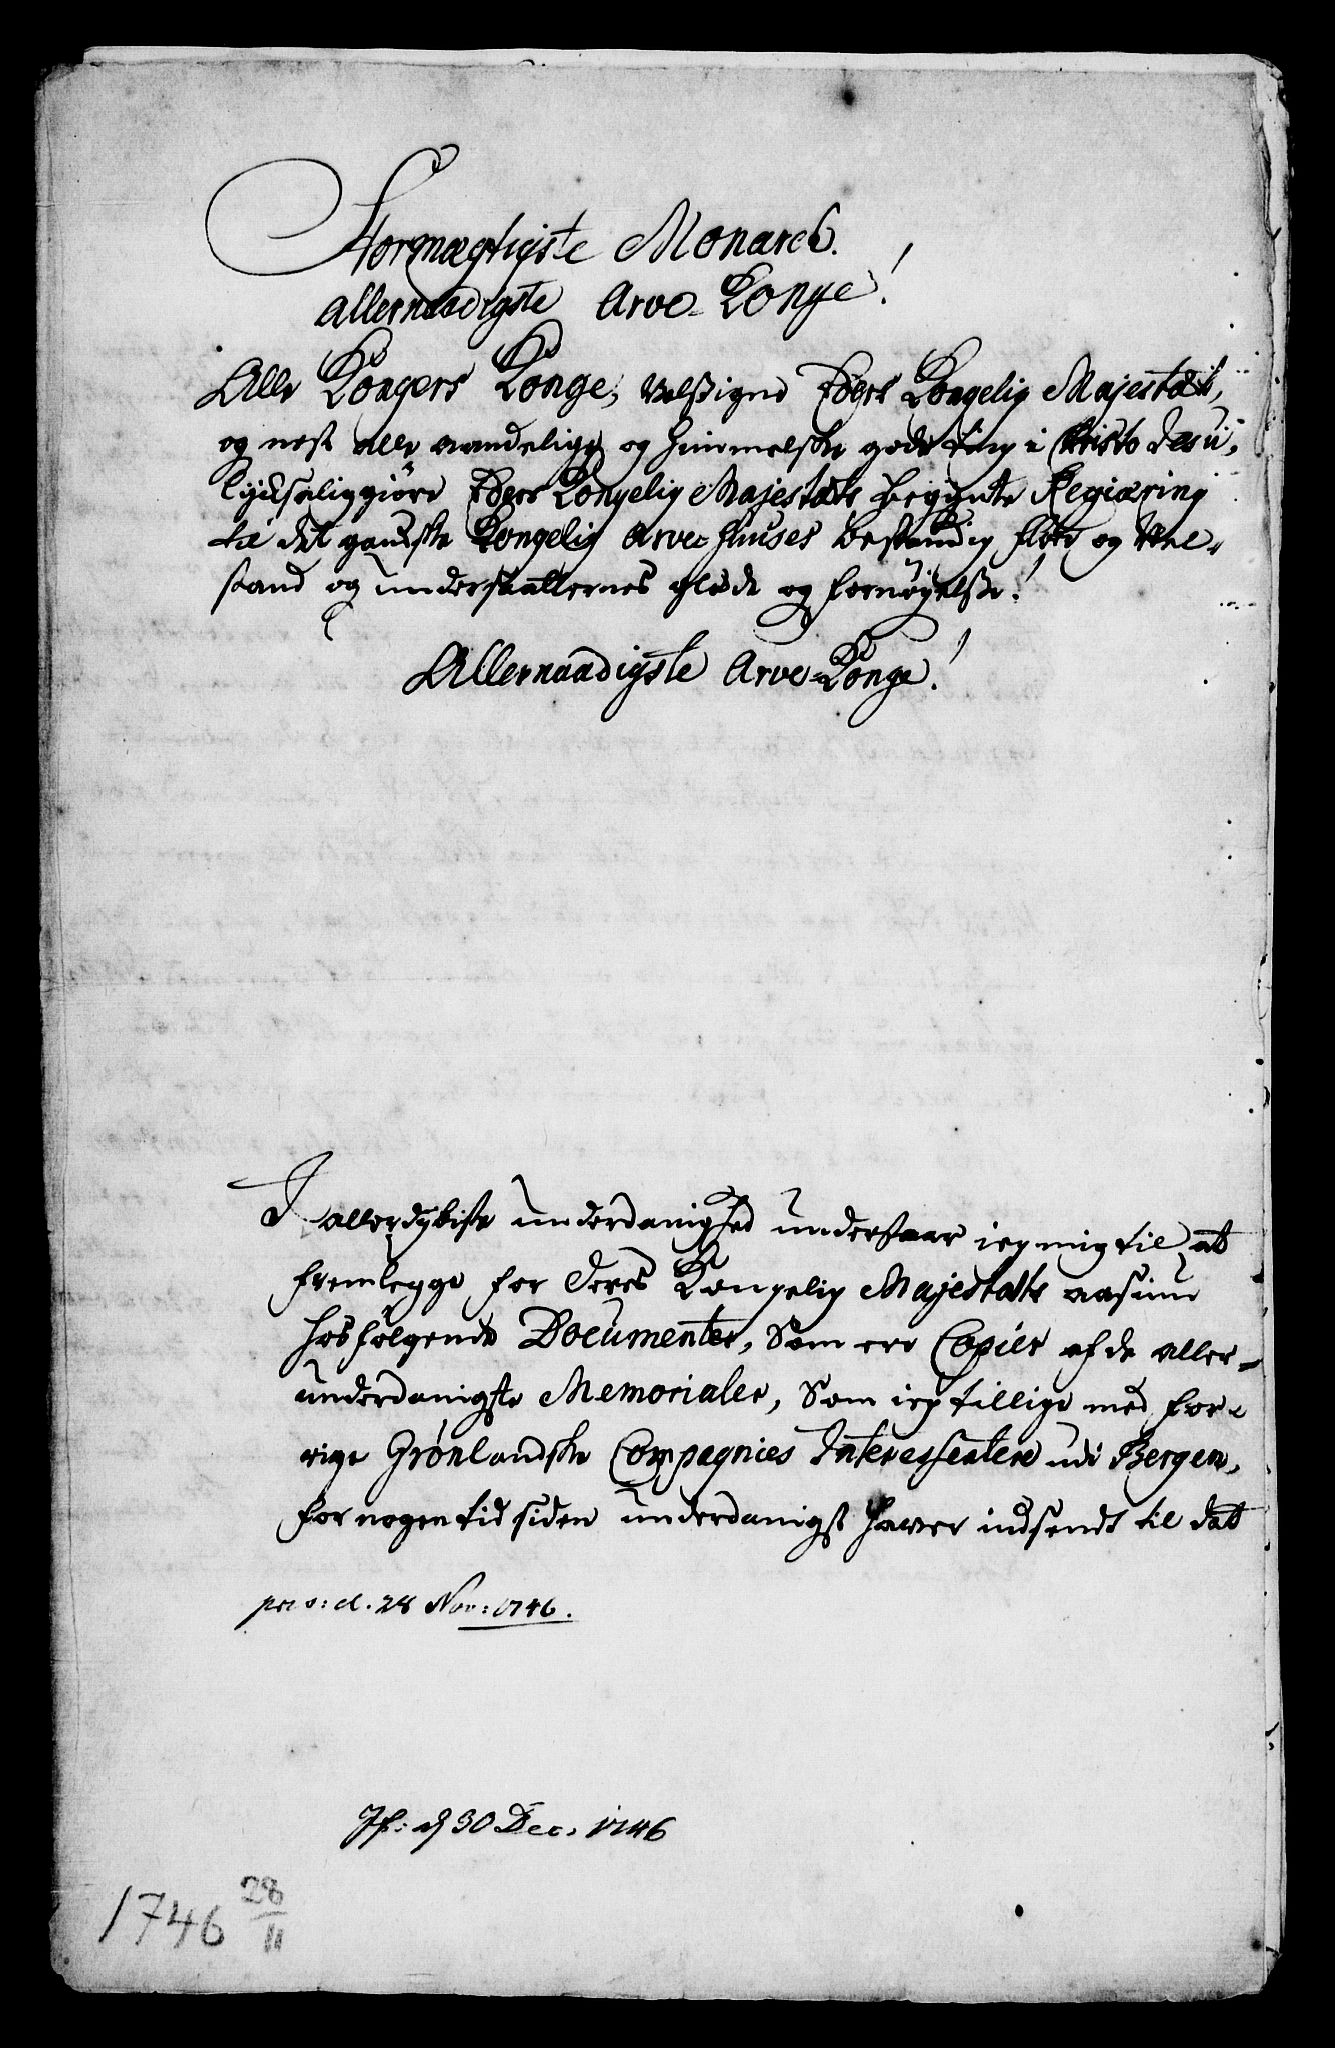 Stormægtigste Monarch.
allernaadigste Arve-Konge!
Alle Kongers Konge, velsigne Eders Kongelig Majestæt,
og nest alle aandelige og himmelske gode ting i Christo Jesu,
lycksaliggiøre Eders Kongelig Majestæts begynte Regiæring
til det gandske Kongelig Arve Huuses bestandig flor og Vel-
stand og undersaatternes glæde og fornøyelse!
Allernaadigste Arve-Konge!
I allerdybiste underdanighed understaar jeg mig til at
fremlegge for Deres Kongelig Majestæts aasiun
hosfølgende Documenter, Som ere Copier af de aller-
underdanigste Memorialer, Som jeg tillige med for-
rige Grønlandske Compagnies Interessentere udi Bergen,
for nogen tid siden underdanigst haver indsendt til dat
præs: d. 28 Nov: 1746.
d 30 Dec. 1746
1746 28/11